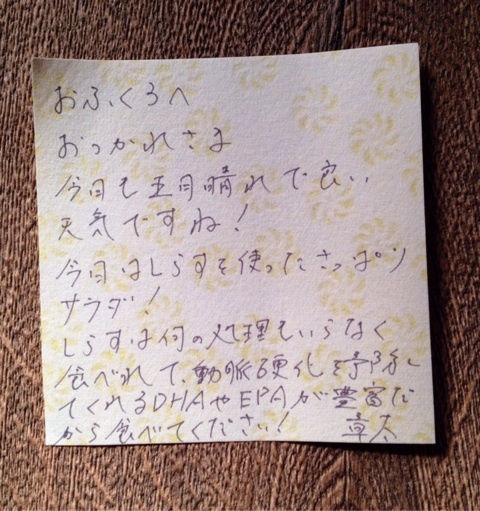 おふくろへ
おつかれさま
今日も五月晴れで良い
天気ですね!
今日はしらすを使ったさっぱり
サラダ!
しらすは何の処理もいらなく
食べれて、動脈硬化を予防し
てくれるDHAやEPAが豊富だ
から食べてください! 章太